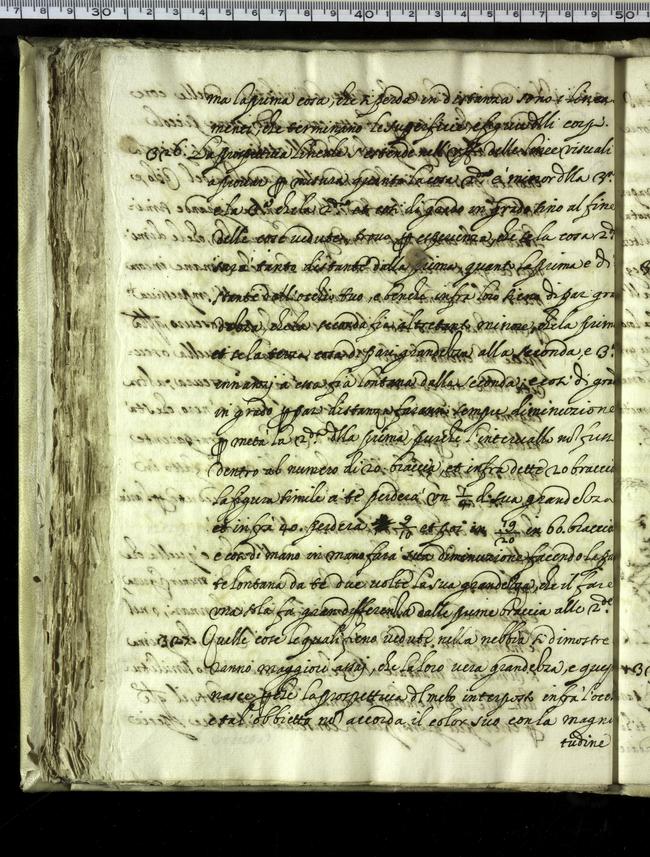 ma la prima cosa, che si perda in distanza sono i linea
menti, che terminano le superficie, e figure delli corpi.
326. La prospettiva lineale s'estende nell' delle linee visuali
a provar p misura quanto la cosa 2ª è minor dlla 3ª
e la 3ª che la et così di grado in grado fino al fine
delle cose vedute, trovo p esperienza, che se la cosa 2ª
sarà tanto distante dalla prima, quanto la prima è di
stante dall'occhio tuo, e benche infrà loro siena di par gra
dezza, che la seconda fia altretanto minore, che la prima
et se la terza cosa di pari grandezza alla seconda, e 3ª
innanzi à essa fia lontana dalla seconda; e così di gra
in grado p par distanza faranno sempre diminuzione
p metà la 2ª dlla prima, purche l'intervallo nõ fusse
dentro al numero di 20. braccia, et infra dette 20 braccia
la figura simile à te perderà un 1/4 di sua grandezza
et infrà 40. perderà 9/10 et poi in 19/20 in 60. braccia
e così di mano in mano farà sua diminuzione facendo la pa
te lontana da te due volte la sua grandezza, che il fare
una sola fa gran differenza dalle prime braccia alle 2ᵈᵉ
327. Quelle cose le quali sieno vedute nella nebbia si dimostre
ranno maggiori assai, che la loro vera grandezza, e ques
nasce perche la prospettiva del mezo interposto infrà l'occhi
e tal obbietto nõ accorda il color suo con la magni
tudine